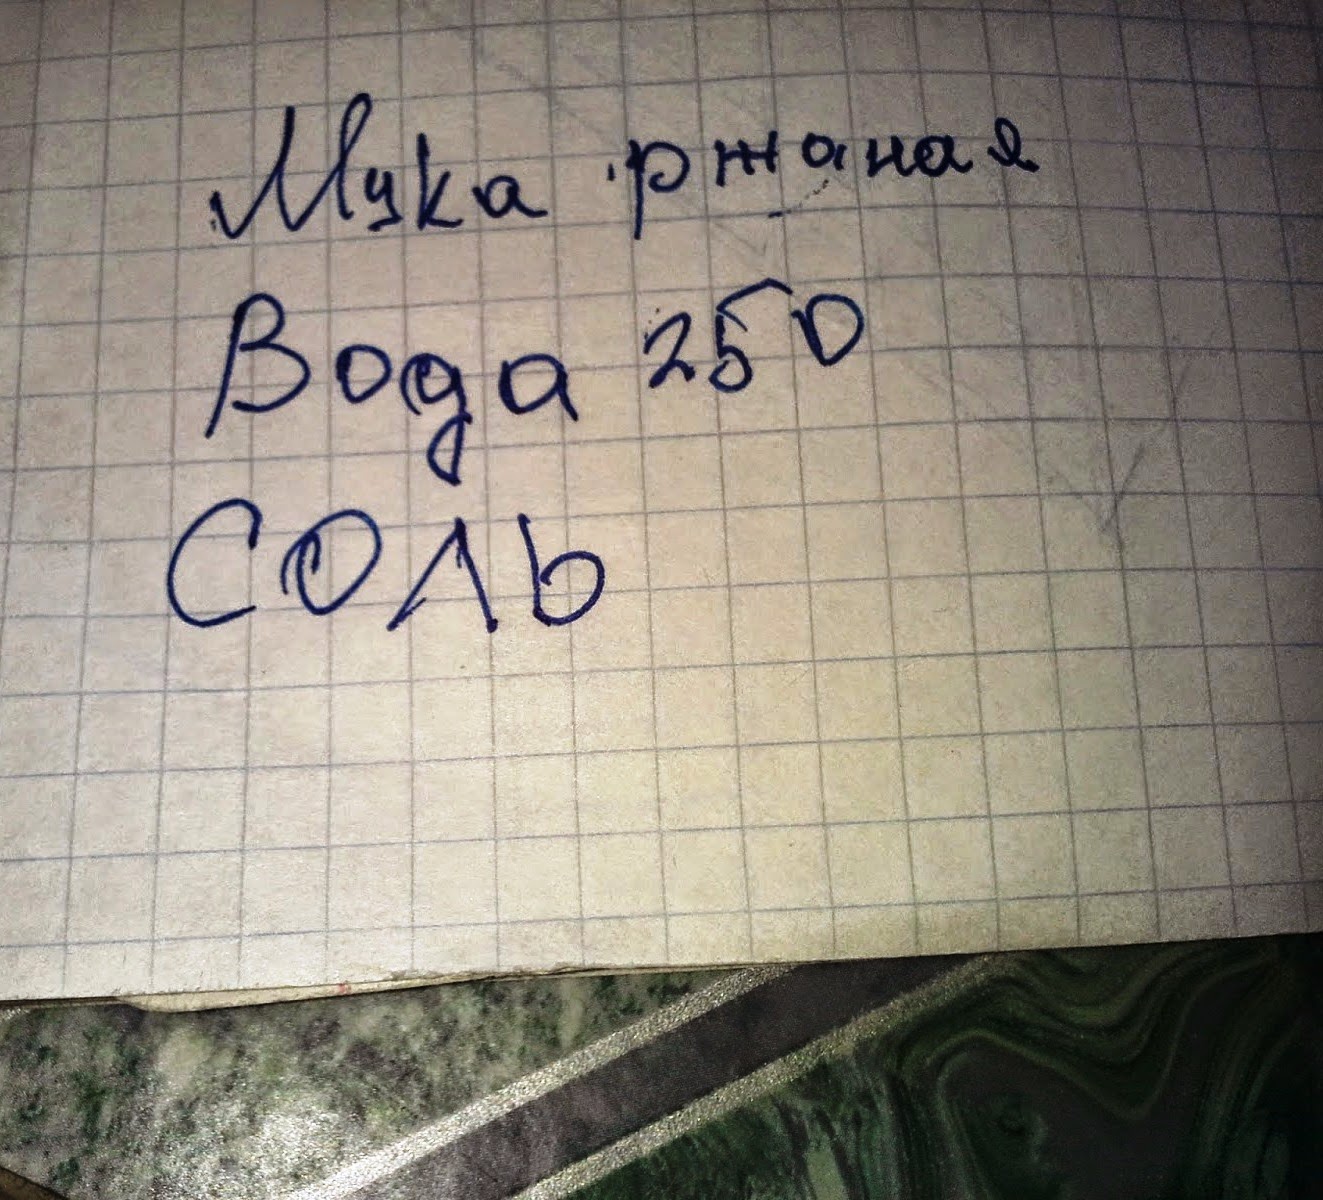 Мука ржаная
Вода 250
СОЛЬ